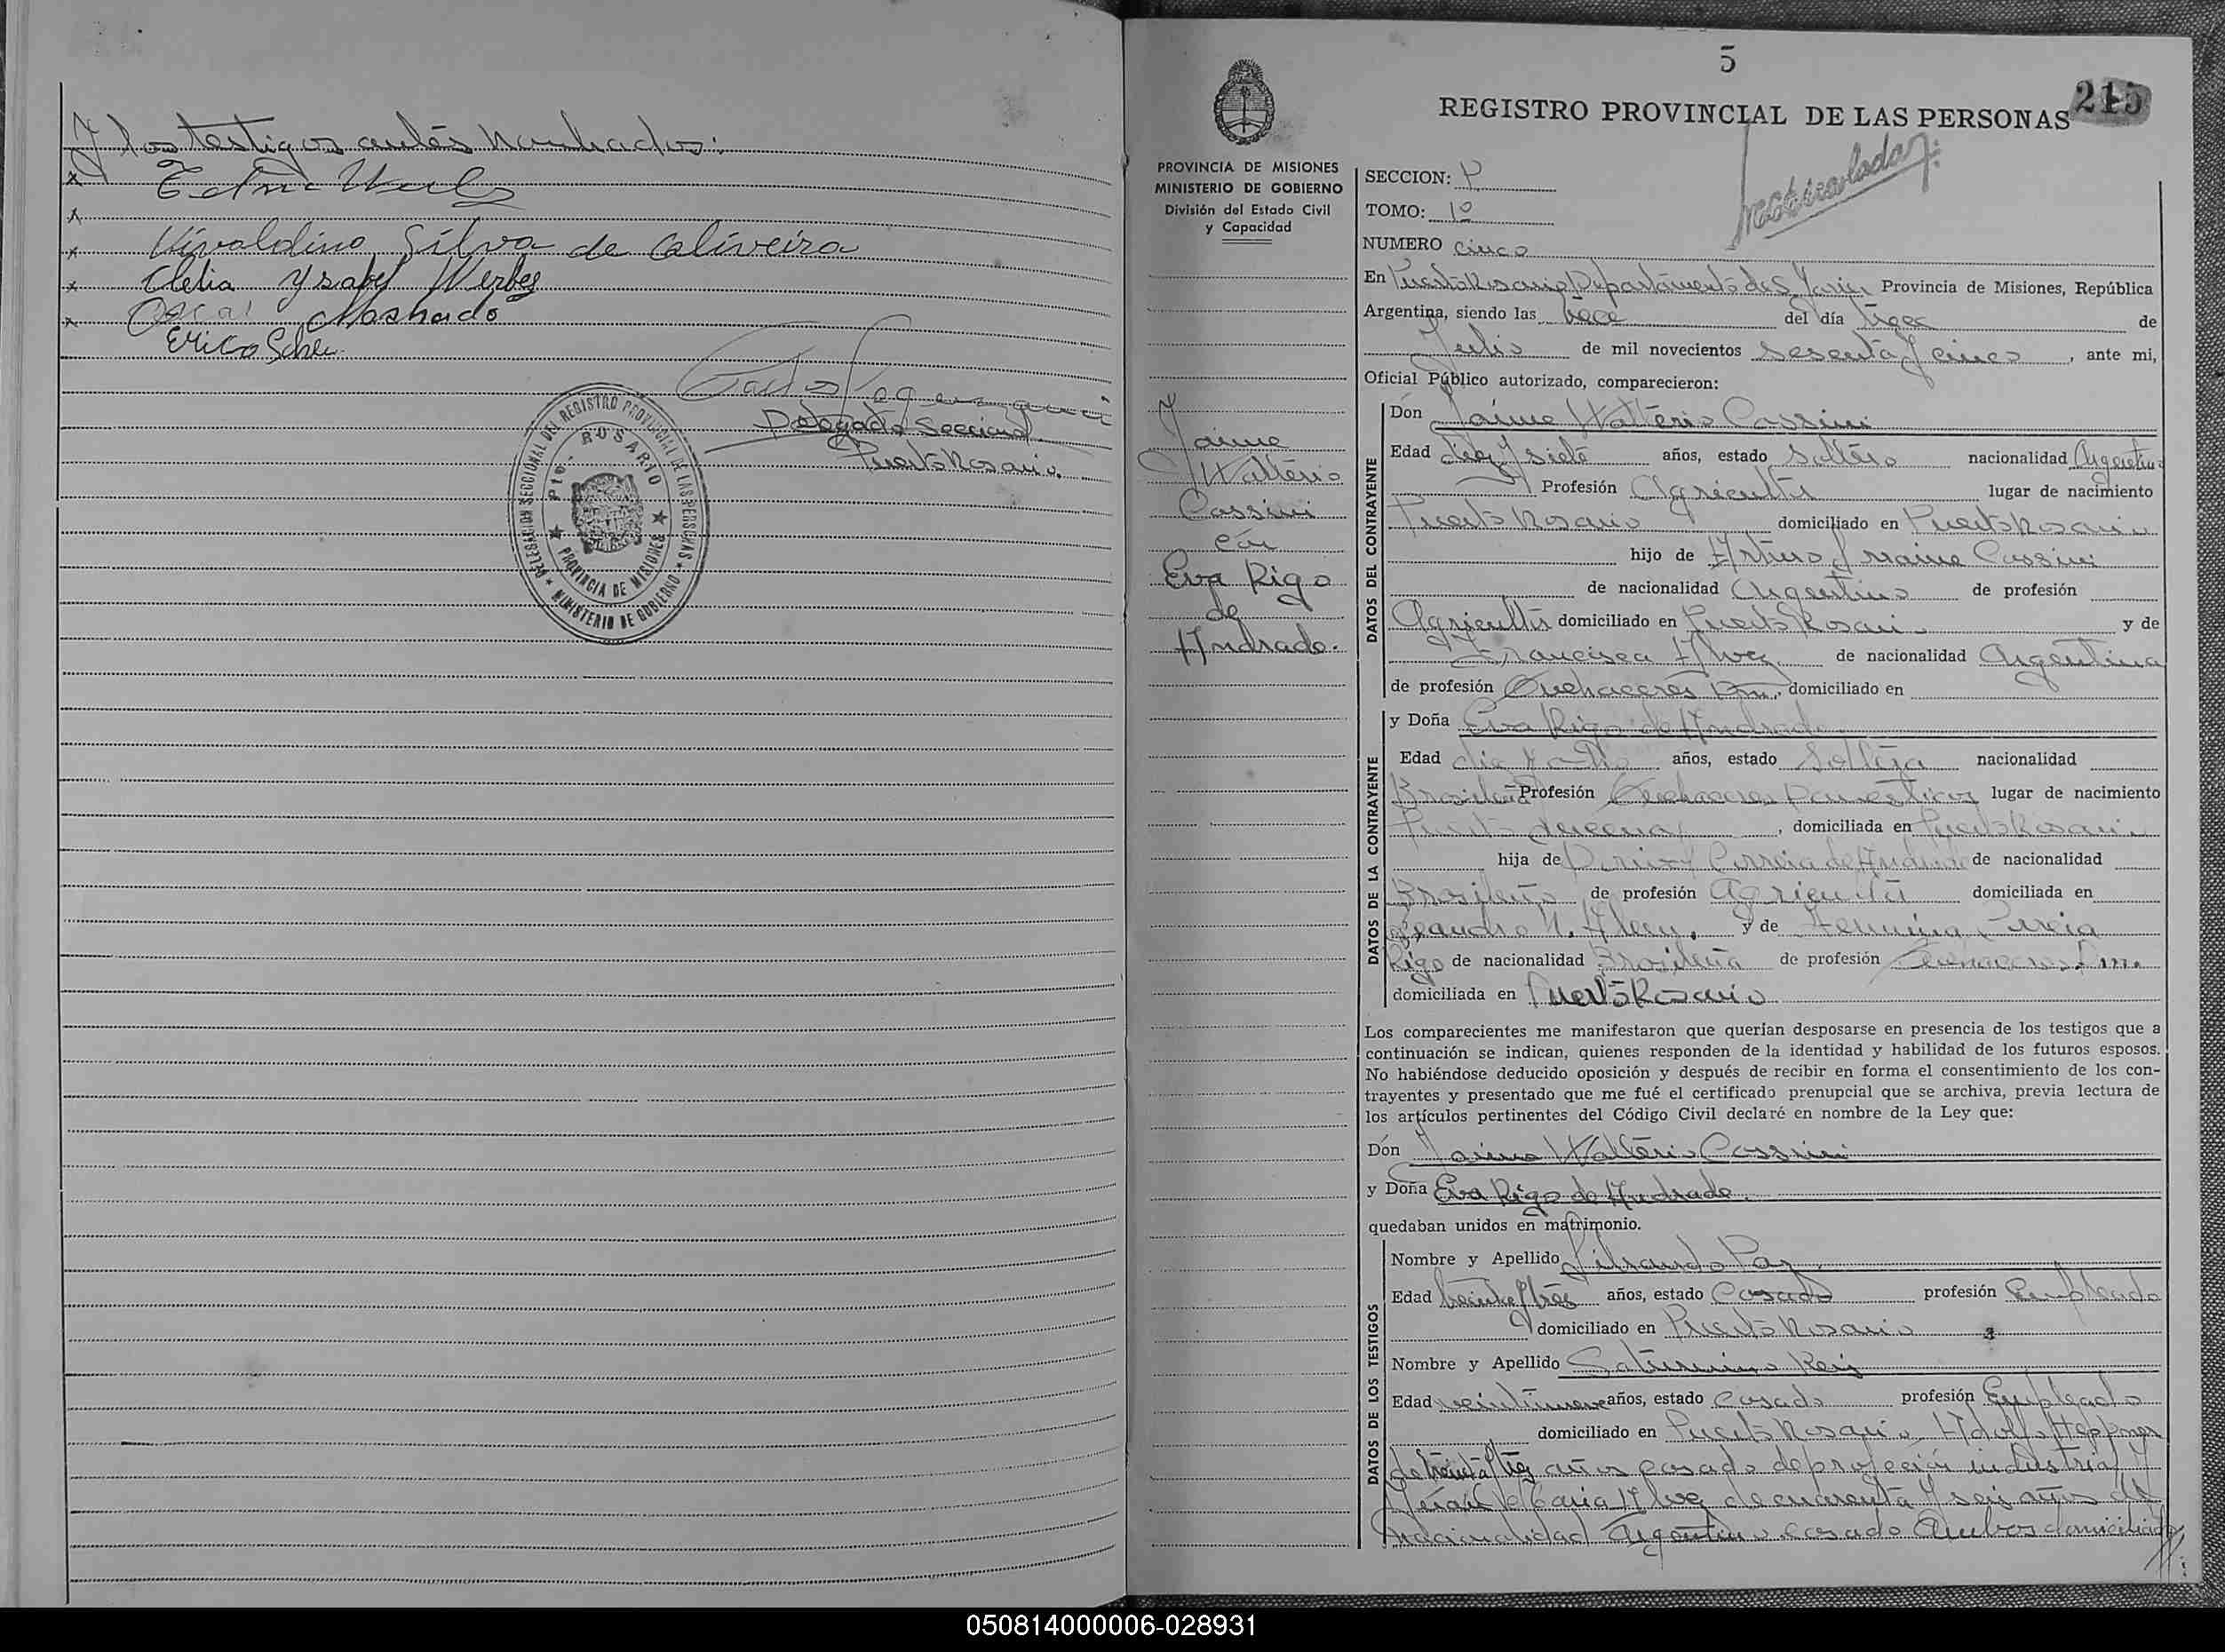 Y los testigos antes nombrados:
x
x
x Vivaldino Silva de Oliveira
x Clelia Ysabel Werbes
x Oscar Moshado
Erico
Delegado Seccional
Puerto Rosario.
DELEGACION SECCIONAL DEL REGISTRO PROVINCIAL DE LAS PERSONAS ★ MINISTERIO DE GOBIERNO ★
Pto. ROSARIO ★ PROVINCIA DE MISIONES ★
5
REGISTRO PROVINCIAL DE LAS PERSONAS
215
PROVINCIA DE MISIONES
MINISTERIO DE GOBIERNO
División del Estado Civil
y Capacidad
Jaime
Walterio
Cassini
con
Eva Rigo
de
Andrade.
SECCION: P
TOMO: 1º
NUMERO cinco
En Puerto Rosario Departamento de S. Javier Provincia de Misiones, República
Argentina, siendo las del día de
Julio de mil novecientos sesenta y cinco, ante mi,
Oficial Público autorizado, comparecieron:
DATOS DEL CONTRAYENTE
Don Jaime Walterio Cassini
Edad diez y siete años, estado Soltero nacionalidad Argentino
Profesión Agricultor lugar de nacimiento
Puerto Rosario domiciliado en Puerto Rosario
hijo de Arturo Cassini
de nacionalidad Argentino de profesión
Agricultor domiciliado en Puerto Rosario y de
Francisca Alvez de nacionalidad Argentina
de profesión Quehaceres Dm. domiciliado en
DATOS DE LA CONTRAYENTE
y Doña Eva Rigo de Andrade
Edad años, estado Soltera nacionalidad
Brasileña Profesión Quehaceres Domesticos lugar de nacimiento
Puerto , domiciliada en Puerto Rosario
hija de Correia de Andrade de nacionalidad
Brasileño de profesión Agricultor domiciliada en
Leandro N. Alem. y de
Rigo de nacionalidad Brasileña de profesión Quehaceres Dm.
domiciliada en Puerto Rosario
Los comparecientes me manifestaron que querían desposarse en presencia de los testigos que a
continuación se indican, quienes responden de la identidad y habilidad de los futuros esposos.
No habiéndose deducido oposición y después de recibir en forma el consentimiento de los con-
trayentes y presentado que me fué el certificado prenupcial que se archiva, previa lectura de
los artículos pertinentes del Código Civil declaré en nombre de la Ley que:
Don Jaime Walterio Cassini
y Doña Eva Rigo de Andrade.
quedaban unidos en matrimonio.
DATOS DE LOS TESTIGOS
Nombre y Apellido Paz
Edad años, estado Casado profesión Empleado
domiciliado en Puerto Rosario
Nombre y Apellido Saturnino
Edad veintinueve años, estado casado profesión Empleado
domiciliado en Puerto Rosario. Adolfo Heppner
de treinta y tres años casado de profeción industrial y
Maria Alvez de cuarenta y seis años de
nacionalidad Argentino casado Ambos domiciliado
050814000006-028931